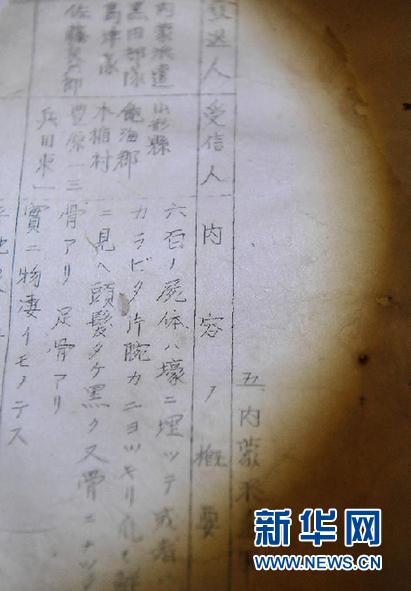 五、内蒙
發送人
受信人
内容ノ概要
内蒙派遣
黒田部隊
高津隊
佐藤
山形縣
飽海郡
本楯村
豊原一三
兵田東一
六百ノ屍体ハ壕ニ埋ツテ或者ハ
カラビタ片腕カニヨツキリ
ニ見ヘ頭髪タケ黒ク又骨ニナツ
骨アリ 足骨アリ
實ニ物凄イモノテス
新华网
WWW.NEWS.CN